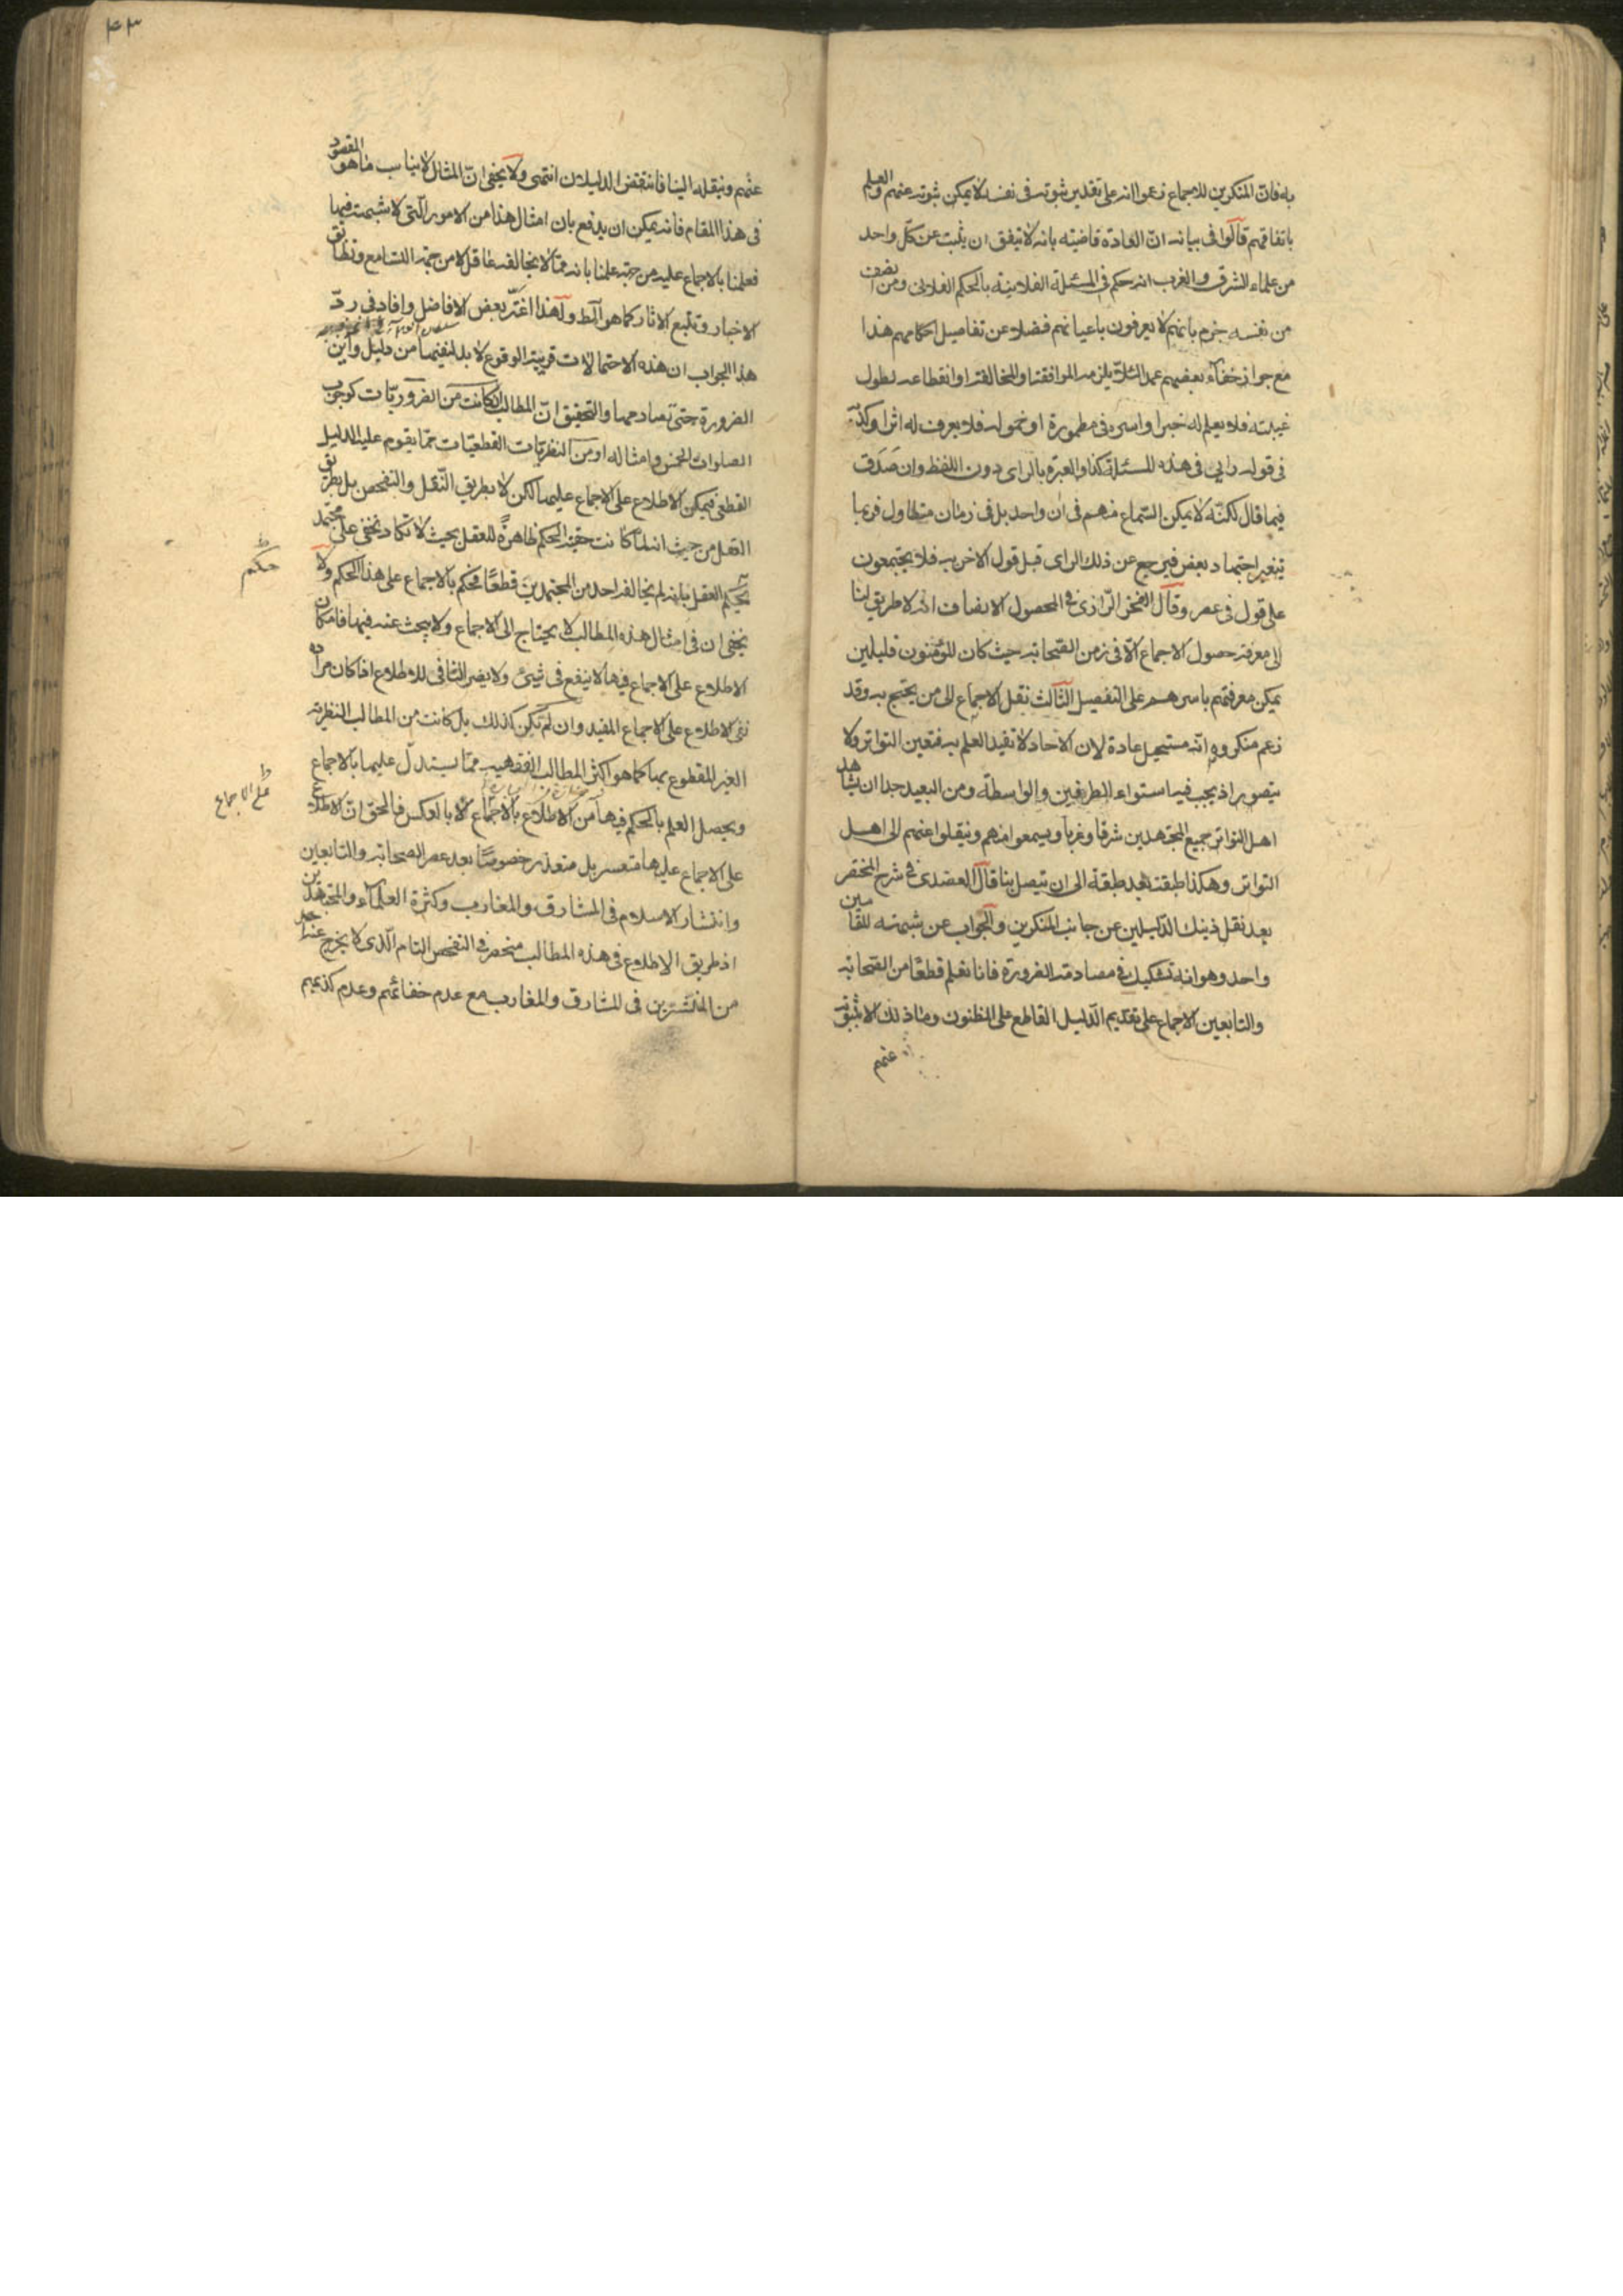 به فان المنكرين للاجماع زعموا انه على تقدير ثبوته فى نفسه لا يمكن ثبوته عنهم والعلم
باتفاقهم قالوا فى بيانه ان العادة قاضية بانه لا يتفق ان يثبت عن كل واحد
من علماء الشرق والغرب انه حكم فى المسئلة الفلانية بالحكم الفلانى ومن انصف
من نفسه جزم بانهم لا يعرفون باعيانهم فضلا عن تفاصيل احكامهم هذا
مع جواز خفاء بعضهم عمدا لئلا يلزمه الموافقة او المخالفة او انقطاعه لطول
غيبته فلا يعلم له خبر او اسره فى مطمورة او خموله فلا يعرف له اثر او كذبه
فى قوله رايى فى هذه المسئلة كذا والعبرة بالراى دون اللفظ وان صدق
فيما قال لكنه لا يمكن السماع منهم فى ان واحد بل فى زمان متطاول فربما
يتغير اجتهاد بعض فيرجع عن ذلك الراى قبل قول الاخر به فلا يجتمعون
على قول فى عصر وقال الفخر الرازى فى المحصول الانصاف انه لا طريق لنا
الى معرفة حصول الاجماع الا فى زمن الصحابة حيث كان المؤمنون قليلين
يمكن معرفتهم باسرهم على التفصيل الثالث نقل الاجماع الى من يحتج به وقد
زعم منكروه انه مستحيل عادة لان الاحاد لا تفيد العلم به فتعين التواتر ولا
يتصور اذ يجب فيه استواء الطرفين والواسطة ومن البعيد جدا ان يشاهد
اهل التواتر جميع المجتهدين شرقا وغربا ويسمعوا منهم وينقلوا عنهم الى اهل
التواتر وهكذا طبقة بعد طبقة الى ان يتصل بنا قال العضدى فى شرح المختصر
بعد نقل ذينك الدليلين عن جانب المنكرين والجواب عن شبهة المقامين
واحد وهو انه تشكيك فى مصادمة الضرورة فانا نعلم قطعا من الصحابة
والتابعين الاجماع على تقديم الدليل القاطع على المظنون وما ذلك الا بثبوته
عنهم
۴۳
عنهم وبنقله الينا فانتقض الدليلان انتهى ولا يخفى ان المثال لا يناسب ما هو المقصود
فى هذا المقام فانه يمكن ان يدفع بان امثال هذا من الامور التى لا شبهة فيها
فعلمنا بالاجماع عليه من جهة علمنا بانه مما لا يخالفه عاقل لا من جهة التسامع وتطابق
الاخبار وتتبع الاثار كما هو ولهذا اغتر بعض الافاضل وافاد فى رد
هذا الجواب ان هذه الاحتمالات قريبة الوقوع لا بد لنفيها من دليل واين
الضرورة حتى تصادمها والتحقيق ان المطالب ان كانت من الضروريات كوجوب
الصلوات الخمس وامثاله او من النظريات القطعيات مما يقوم عليه الدليل
القطعى فيمكن الاطلاع على الاجماع عليها لكن لا بطريق النقل والتفحص بل بطريق
العقل من حيث انه لما كانت حقية الحكم ظاهرة للعقل بحيث لا تكاد تخفى على مجتهد
يحكم العقل بانه لم يخالف احد من المجتهدين قطعا فحكم بالاجماع على هذا الحكم ولا
حكم
يخفى ان فى امثال هذه المطالب لا يحتاج الى الاجماع ولا يبحث عنه فيها فامكان
الاطلاع على الاجماع فيها لا ينفع فى شيئ ولا يضر النافى للاطلاع اذا كان مراده
نفى الاطلاع على الاجماع المفيد وان لم تكن كذلك بل كانت من المطالب النظرية
الغير المقطوع بها كما هو اكثر المطالب الفقهية مما يستدل عليها بالاجماع
ويحصل العلم بالحكم فيها من الاطلاع بالاجماع لا بالعكس فالحق ان الاطلاع
على الاجماع
على الاجماع عليها متعسر بل متعذر خصوصا بعد عصر الصحابة والتابعين
وانتشار الاسلام فى المشارق والمغارب وكثرة العلماء والمجتهدين
اذ طريق الاطلاع فى هذه المطالب منحصر فى التفحص التام الذى لا يخرج عنه احد
من المنتشرين فى المشارق والمغارب مع عدم خفائهم وعدم كذبهم